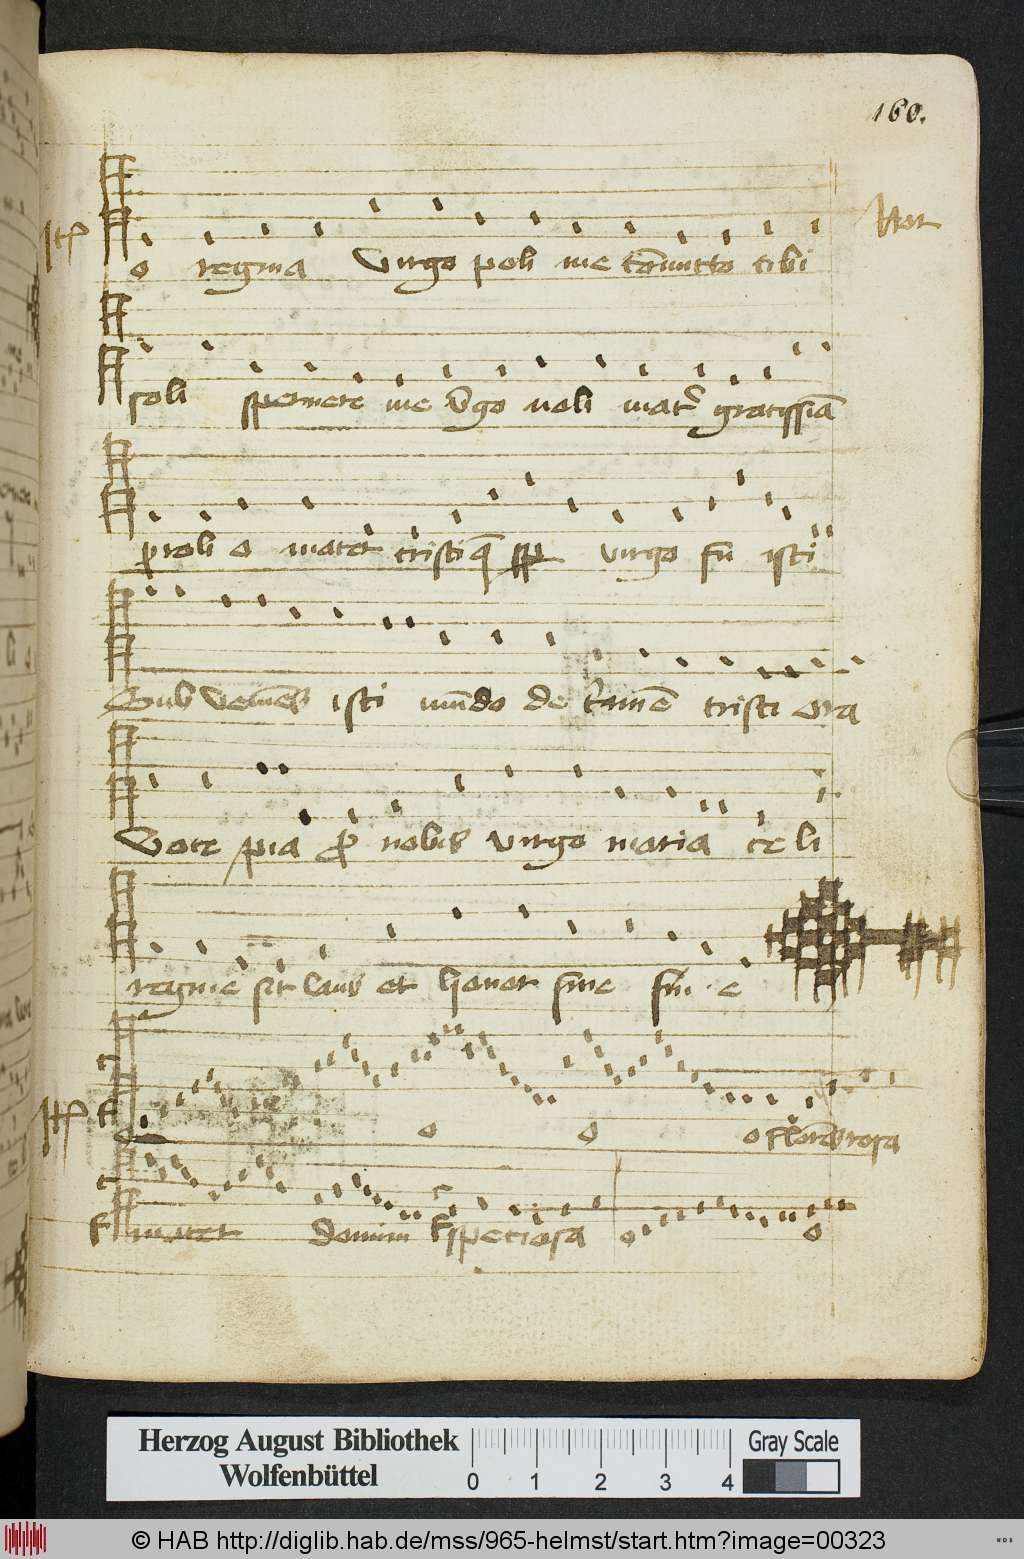 160.
Itē o regina virgo poli me cōmitto tibi
soli spernere me v̄go noli mat̄ gratissīa
proli o mater tristi q̄ virgo fū isti
Sub veniēs isti mūdo de tristi Ora
Voce pia p̄ nobis virgo maria celi
regine sit laus et honor sine
Itē o o o o florēs rosa
mater domini speciosa o o
Herzog August Bibliothek
Wolfenbüttel
0 1 2 3 4
Gray Scale
© HAB http://diglib.hab.de/mss/965-helmst/start.htm?image=00323